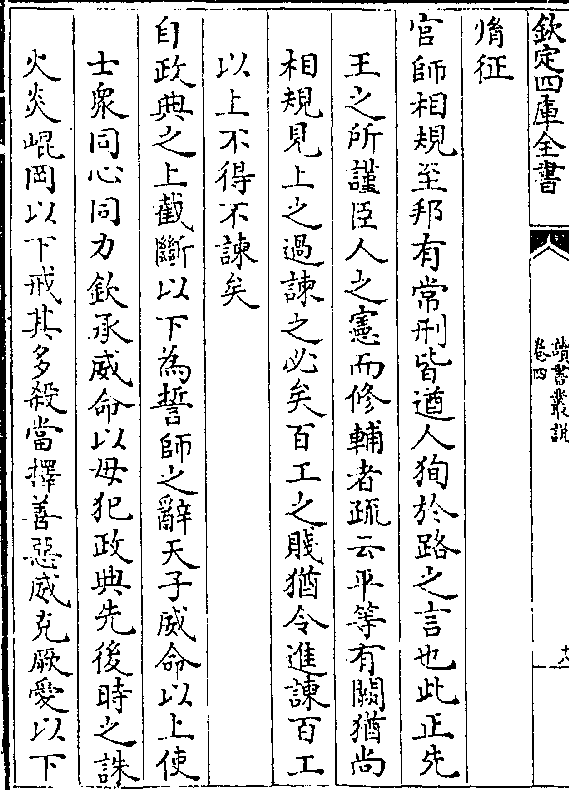 欽定四庫全書
讀書叢說
卷四
胤征
官師相規至邦有常刑皆遒人狥於路之言也此正先
王之所謹臣人之憲而修輔者疏云平等有闕猶尚
相規見上之過諫之必矣百工之賤猶令進諫百工
以上不得不諫矣
自政典之上截斷以下為誓師之辭天子威命以上使
士衆同心同力欽承威命以毋犯政典先後時之誅
火炎崐岡以下戒其多殺當擇善惡威克厥愛以下